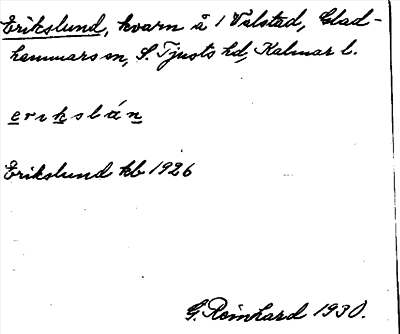 Erikslund, kvarn å 1 Talstad, Glad-
hammars sn, S. Tjusts hd, Kalmar l.
erikslán
Erikslund kb 1926
G. Reinhard 1930.